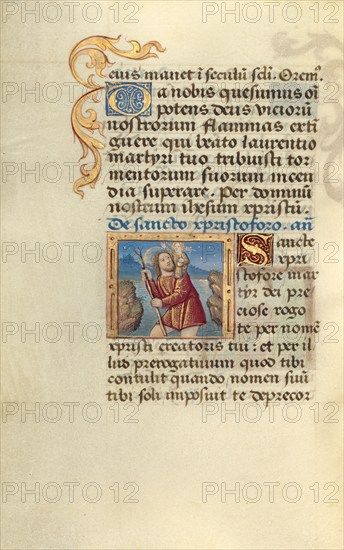 eius manet i seculũ scli. Orem⁹
Da nobis quesumus oı̃
potens deus viciorũ
nostrorum flammas exti
guere qui beato laurentio
martyri tuo tribuisti tor
mentorum suorum incen
dia superare. Per dominũ
nostrum ihesum xpristũ.
De sancto xpristoforo. añ
Sancte
xpri
stofore mar
tyr dei pre
ciose rogo
te per nomẽ
xpristi creatoris tui: et per il
lud prerogatiuum quod tibi
contulit quando nomen suũ
tibi soli imposuit te deprecor